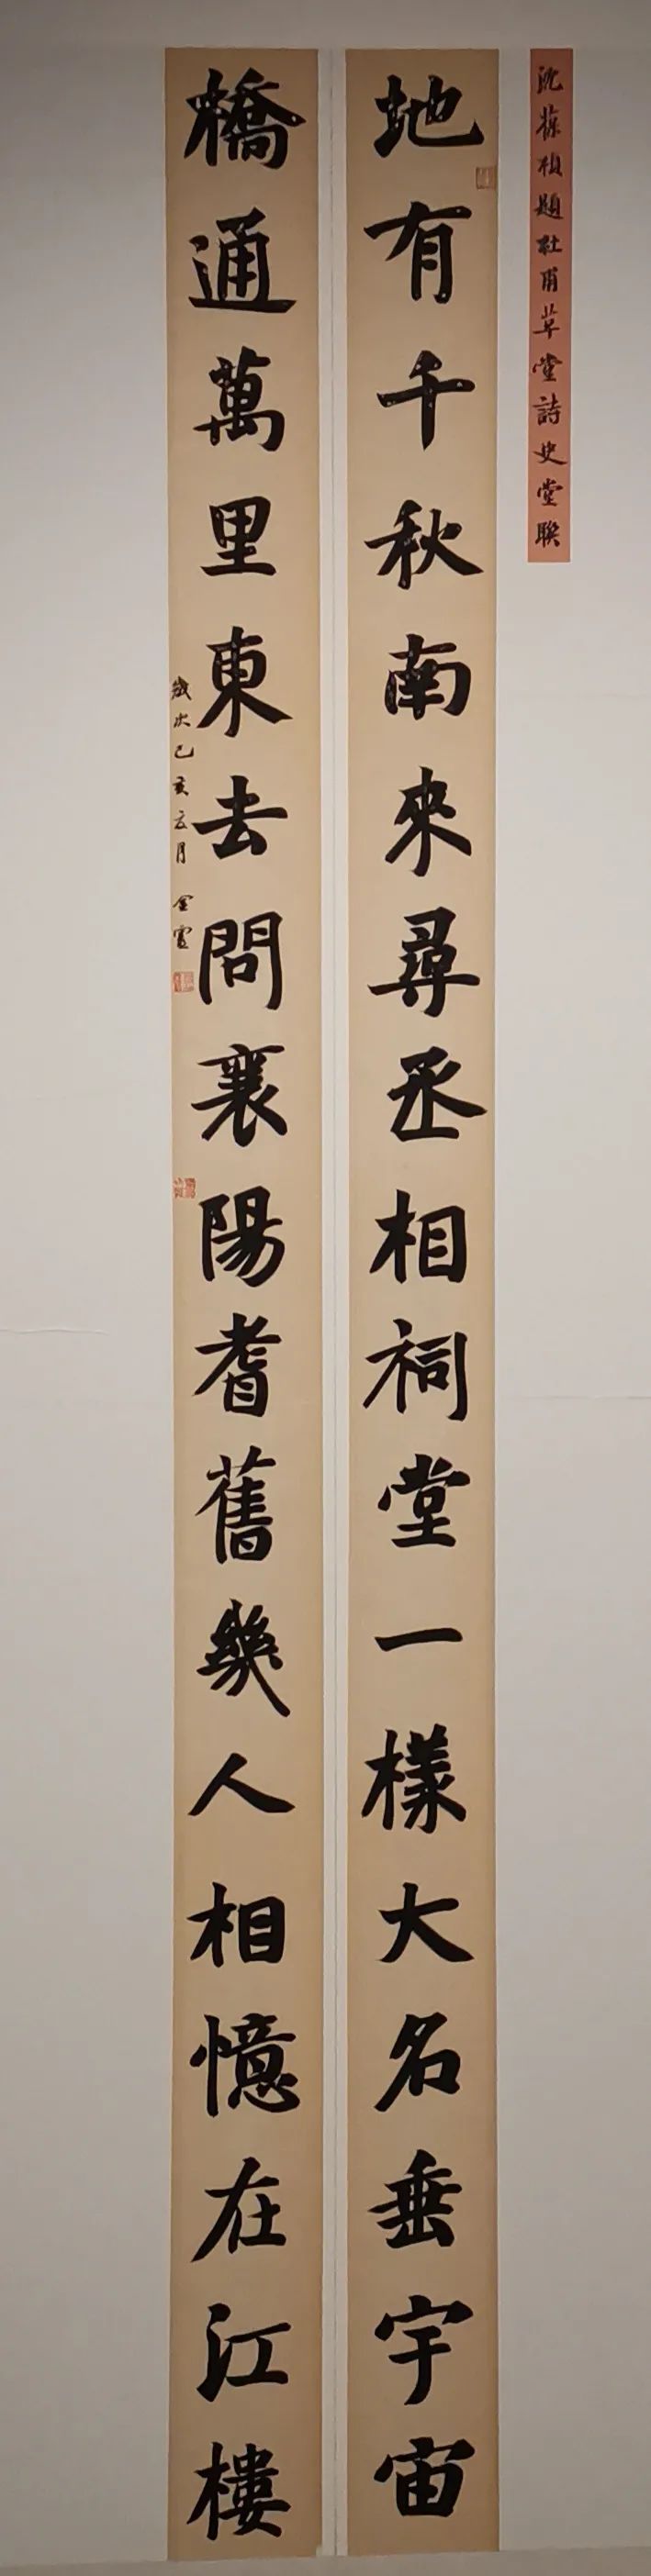 沈葆楨題杜甫草堂詩史堂聯
地有千秋南來尋丞相祠堂一樣大名垂宇宙
橋通萬里東去問襄陽耆舊幾人相憶在江樓
歲次己亥五月 金實